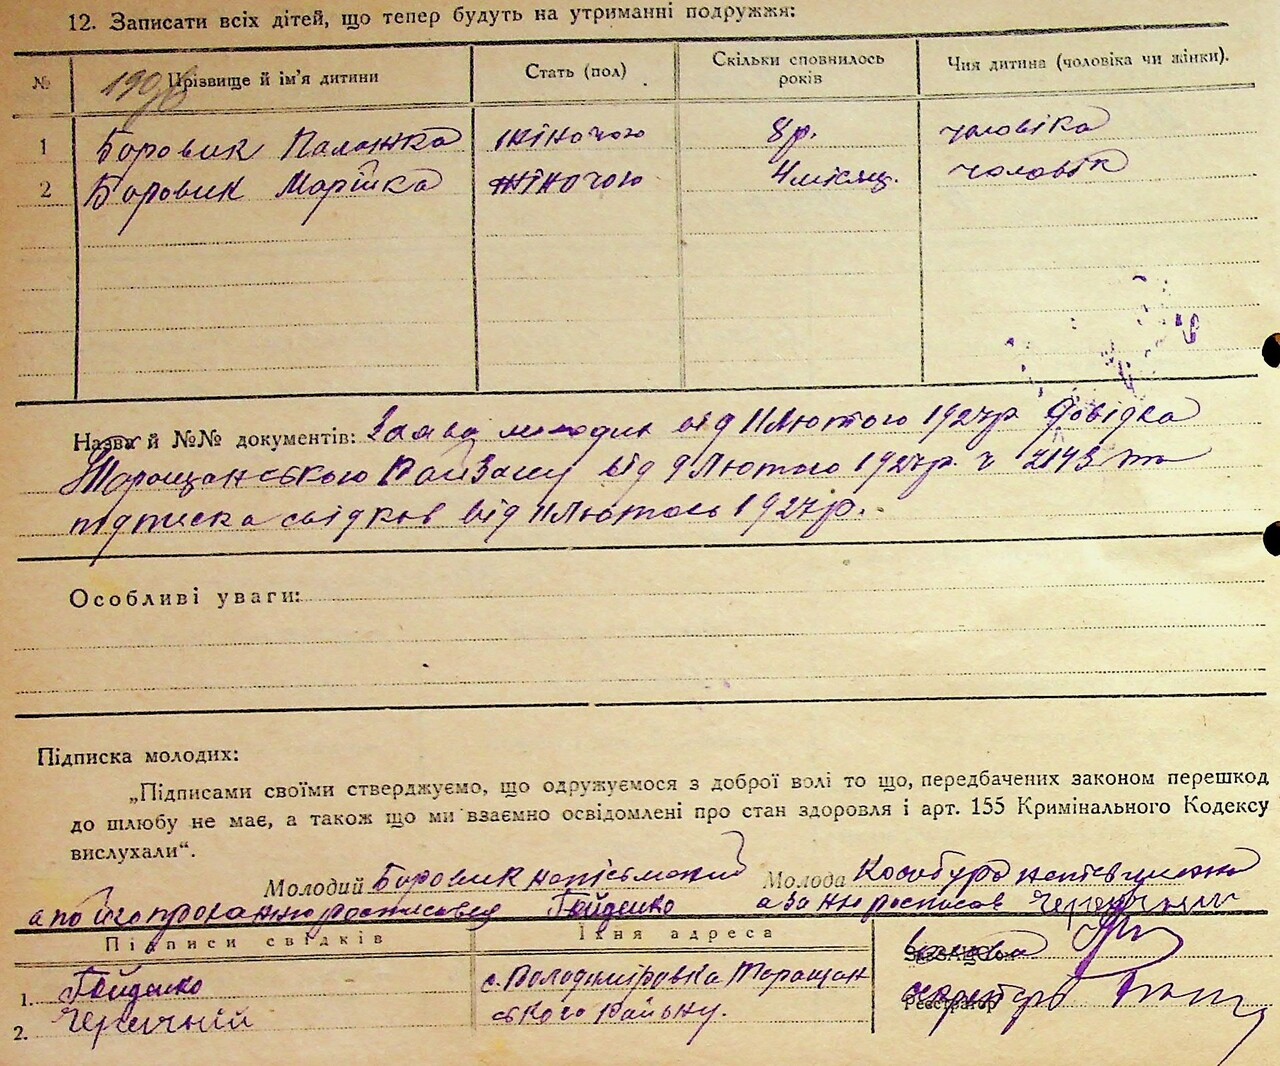 12. Записати всіх дітей, що тепер будуть на утриманні подружжя:
№ Прізвище й ім'я дитини Стать (пол) Скільки сповнилось років Чия дитина (чоловіка чи жінки).
1 Боровик Палажка жіночою 8 р. чоловіка
2 Боровик Марійка жіночою 4 місяц. чоловік
Назва й №№ документів: Заява молодих від 11 Лютого 1927 р. Довідка
Таращанського від 9 Лютого 1927 р. ч 2143 та
підписка свідків від 11 Лютого 1927 р.
Особливі уваги:
Підписка молодих:
„Підписами своїми стверджуємо, що одружуємося з доброї волі то що, передбачених законом перешкод
до шлюбу не має, а також що ми взаємно освідомлені про стан здоровля і арт. 155 Кримінального Кодексу
вислухали“.
Молодий Боровик неписьмений Молода
а по його проханню росписався Гайденко а за ню росписав
Підписи свідків Їхня адреса
1. Гайденко с. Володимировка Таращан
2. ського Району.
Реєстратор